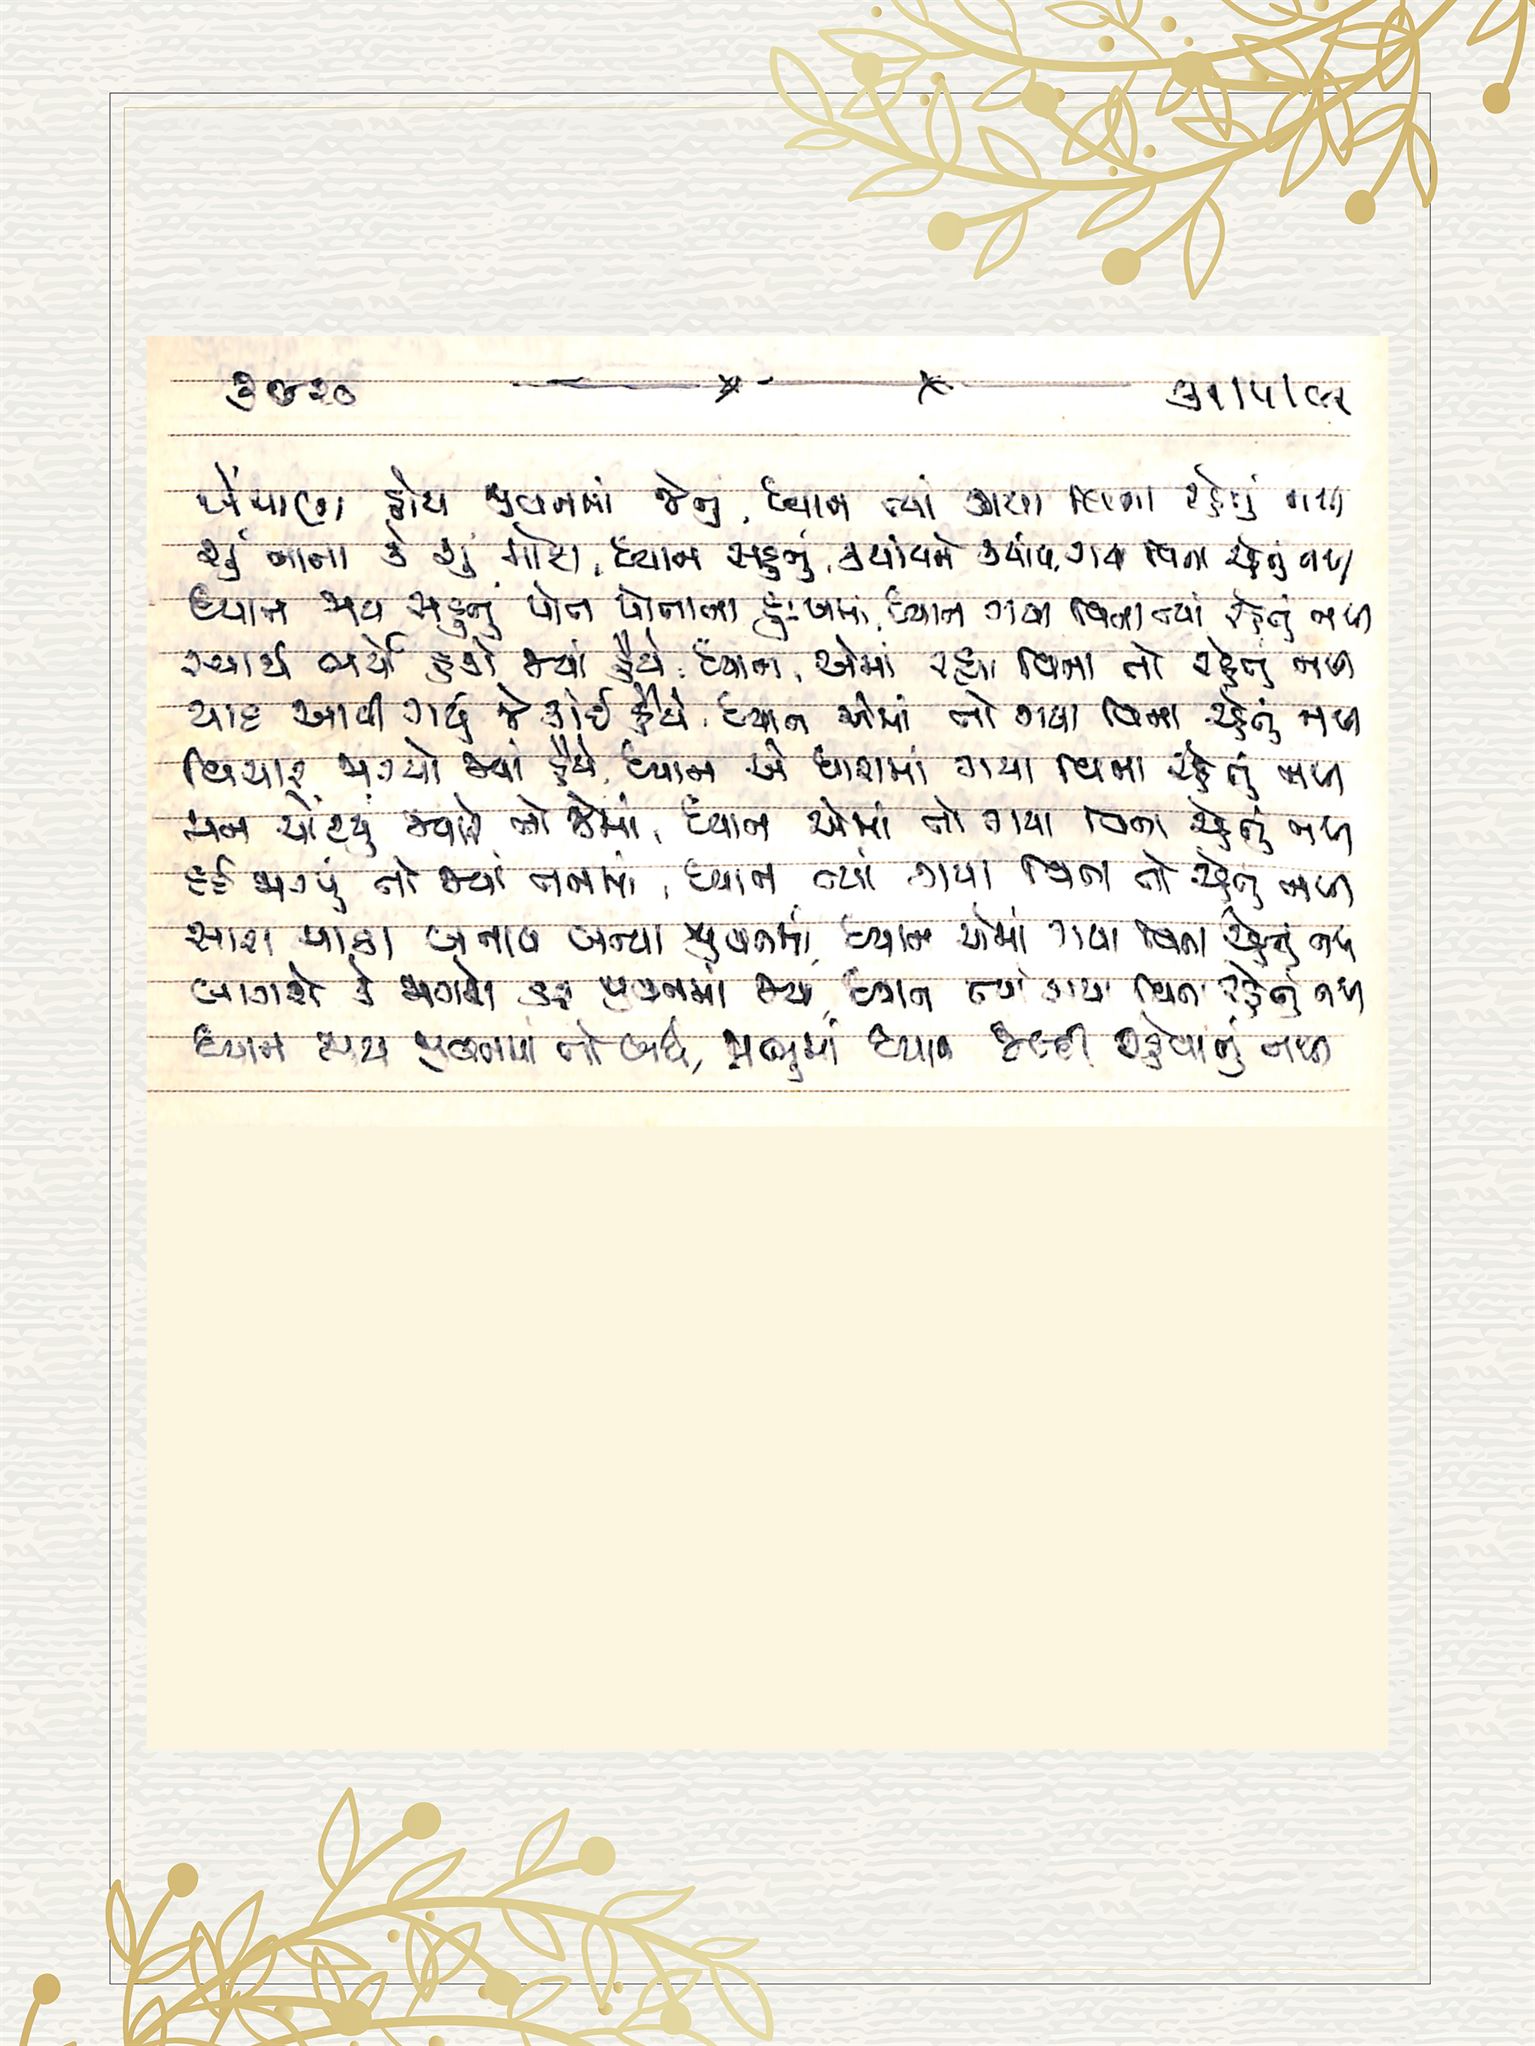 ૩૭૨૦ ૩૧/૫/૯૧
ખેંચાણ હોય જીવનમાં જેનું, ધ્યાન ત્યાં ગયા વિના રહેતું નથી
શું નાના કે શું મોટા, ધ્યાન સહુનું, ક્યાંય ને ક્યાંય, ગયા વિના રહેતું નથી
ધ્યાન જાય સહુનું પોત પોતાના દુઃખમાં, ધ્યાન ગયા વિના ત્યાં રહેતું નથી
સ્વાર્થ ભર્યો હશે જ્યાં હૈયે, ધ્યાન, એમાં રહ્યા વિના તો રહેતું નથી
યાદ આવી ગઈ જે કોઈ હૈયે, ધ્યાન એમાં તો ગયા વિના રહેતું નથી
વિચાર જાગ્યો જ્યાં હૈયે, ધ્યાન એ ધારામાં ગયા વિના રહેતું નથી
મન ચોંટયું જ્યારે તો જેમાં, ધ્યાન એમાં તો ગયા વિના રહેતું નથી
દર્દ જાગ્યું તો જ્યાં તનમાં, ધ્યાન ત્યાં ગયા વિના તો રહેતું નથી
સારા માઠા બનાવ બન્યા જીવનમાં, ધ્યાન એમાં ગયા વિના રહેતું નથી
લાગશે કે જાગશે ડર જીવનમાં જ્યાં, ધ્યાન ત્યાં ગયા વિના રહેતું નથી
ધ્યાન જીવનમાં તો પ્રભુમાં ધ્યાન જલ્દી રહેવાનું નથી